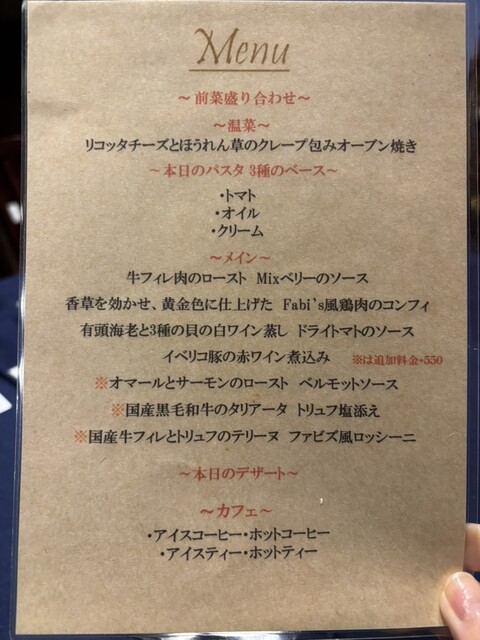 Menu
～前菜盛り合わせ～
～温菜～
リコッタチーズとほうれん草のクレープ包みオーブン焼き
～本日のパスタ 3種のベース～
・トマト
・オイル
・クリーム
～メイン～
牛フィレ肉のロースト Mixベリーのソース
香草を効かせ、黄金色に仕上げた Fabi's風鶏肉のコンフィ
有頭海老と3種の貝の白ワイン蒸し ドライトマトのソース
イベリコ豚の赤ワイン煮込み ※は追加料金+550
※オマールとサーモンのロースト ベルモットソース
※国産黒毛和牛のタリアータ トリュフ塩添え
※国産牛フィレとトリュフのテリーヌ ファビズ風ロッシーニ
～本日のデザート～
～カフェ～
・アイスコーヒー・ホットコーヒー
・アイスティー・ホットティー